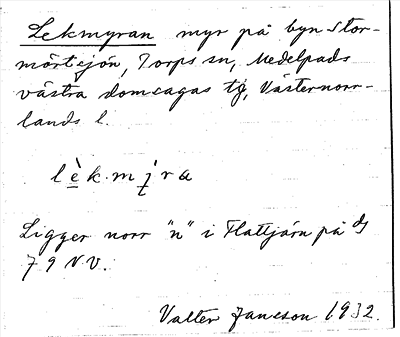 Lekmyran myr på byn Stor-
mörtsjön, Torps sn, Medelpads
västra domsagas tg, Västernorr-
lands l.
lèkmyra
Ligger norr "n" i Flattjärn på
79 NV.
Valter Jansson 1932.